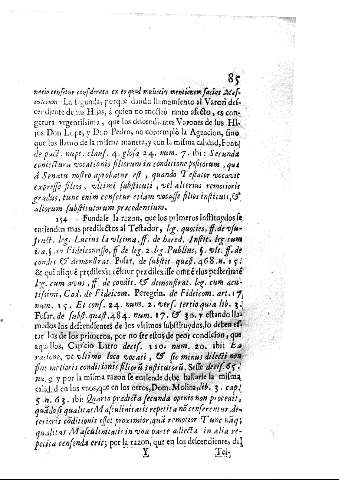 85
natio censetur considerata ex eo quod mulieres mentionem facias Mas-
culorum. La segunda, porque dando llamamiento al Varon des-
cendiente de sus Hijas, à quien no mostrò tanto afecto, es con-
getura urgentissima, que los descendientes Varones de sus Hi-
jos Don Lope, y Don Pedro, no contemplò la Agnacion, sino
que los llamò de la misma manera, y con la misma calidad, Font.
de pact. nupt. claus. 4. glosa 24. num. 7. ibi: Secunda
coniectura vocationis filiorum in conditione positorum, quæ
à Senatu nostro aprobatur est, quando Testator vocavit
expresse filios, ultimi substituti, vel alterius remotioris
gradus, tunc enim censetur etiam vocasse filios instituti, &
aliorum substitutorum præcedentium.
154 Fundase la razon, que los primeros instituidos se
entienden mas predilectos al Testador, leg. quoties, ff. de usu-
fruct. leg. Lucius la ultima, ff. de hared. Instit. leg. cum
ita, §. in Fideicomisso, ff. de leg. 2. leg. Publius, §. ult. ff. de
condit. & demonstrat. Posar. de substit. quæst. 468. n. 15:
& qui aliquè predilexisse
leg. cum avus, ff. de condit. & demonstrat. leg. cum acu-
tissimi, Cod. de Fideicom. Peregrin. de Fideicom. art. 17.
num. 15. Et cons. 24. num. 2. vers. tertio quia lib. 3:
Posar. de subst. quæst. 484. num. 17. & 30. y estando lla-
mados los descendientes de los ultimos substituydos, lo deben es-
tar los de los primeros, por no ser estos de peor condicion, que
aquellos, Caprcio Latro decis. 110. num. 20. ibi: Et
ratione, ne ultimo loco vocati, & sic minus dilecti non
sint melioris conditionis filiorum institutorum. Sesse decis. 65.
nu. 9. y por la misma razon se entiende debe hallarse la misma
calidad en los unos, que en los otros, Dom. Molina, lib. 3. cap.
5. n. 63. ibi: Quarto prædicta secunda opinio non procerit,
quando si qualitas Masculinitatis repetita non censerentur de-
terioris conditionis esset proximior, quàm remotior Tunc naq;
qualitas Masculinitatis in una parte adiecta in alia re-
petita censenda erit; por la razon, que en los descendientes, de
Y Tes-